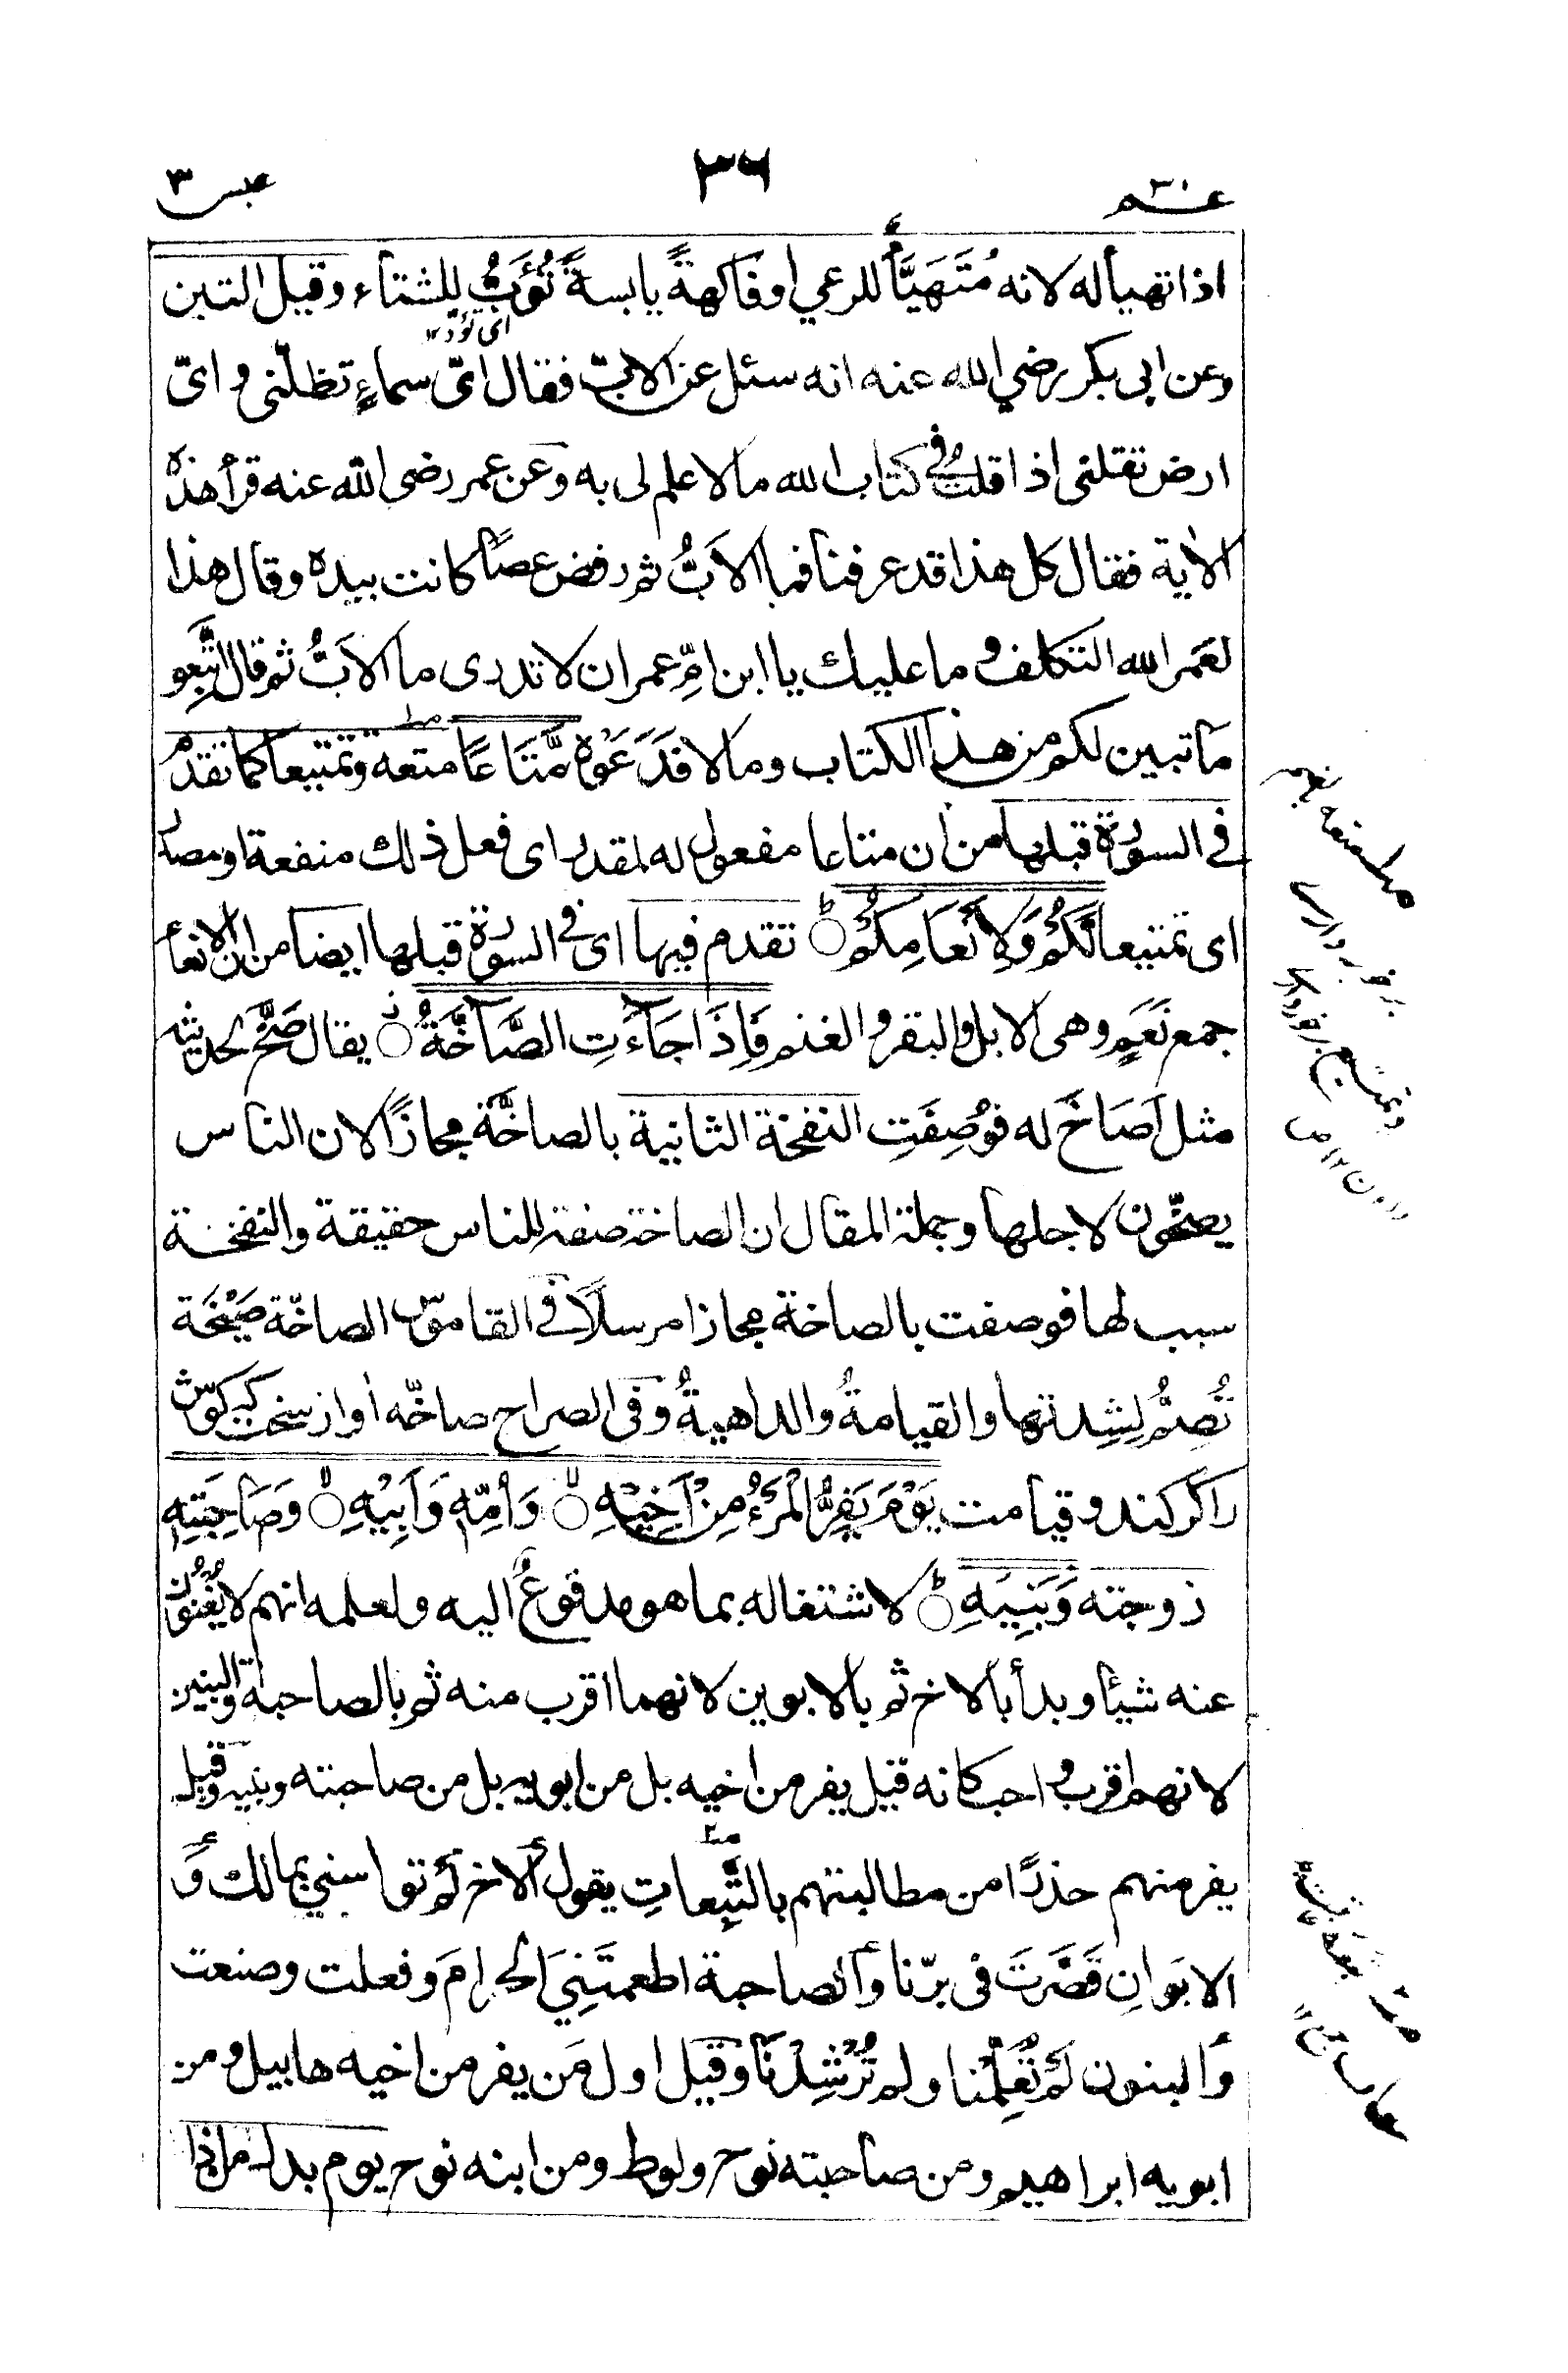 عـم ٣٠
٣٦
عبس ٣
اذا تهيأ له لانه مُتَهَيَّأٌ للرعي او فاكهةً يابسةً تُؤَبُّ للشتاء وقيل التبن
وعن ابى بكر رضي الله عنه انه سئل عن الابّ فقال اىّ سماءٍ تظلّنى و اىّ
ارض تقلنى اذا قلتُ فى كتاب الله ما لا علم لى به وعن عمر رضى الله عنه قرأ هذه
الاٰية فقال كل هذا قد عرفنا فما الابُّ ثم رفض عصًا كانت بيده وقال هذا
لعَمر الله التكلف و ما عليك يا ابن امّ عمر ان لا تدرى ما الابُّ ثم قال اتَّبِعو
ما تبين لكم من هذا الكتاب وما لا فَدَعُوْهُ مَّتَاعًا متعة وتمتيعا كما تقدم
فى السورة قبلها من ان متاعا مفعول له لمقدر اى فعل ذلك منفعة او مصدر
اى تمتيعا لَّكُمْ وَلِاَنْعَامِكُمْ تقدم فيها اى فى السورة قبلها ايضا من ان الانعام
جمع نَعَمٍ وهى الابل والبقر و الغنم فَاِذَا جَآءَتِ الصَّآخَّةُ يقال صَخَّ لحديثه
مثل اَصَاخَ له فوُصِفَتِ النفخة الثانية بالصاخَّة مجازًا لان الناس
يصخّون لاجلها وجملة المقال ان الصاخة صفة للناس حقيقة والنفخة
سبب لها فوصفت بالصاخة مجازا مرسلًا فى القاموس الصاخّة صَيْحَة
تُصِمُّ لِشِدتها والقيامةُ والداهيةُ وفى الصراح صاخّه أواز سخت كه گوش
را كر كند و قيامت يَوْمَ يَفِرُّ الْمَرْءُ مِنْ اَخِيْهِ وَاُمِّهٖ وَاَبِيْهِ وَصَاحِبَتِهٖ
زوجته وَبَنِيْهِ لاشتغاله بما هو مدفوعٌ اليه ولعلمه انهم لا يُغْنُوْنَ
عنه شيئا و بدأ بالاخ ثم بالابوين لانهما اقرب منه ثم بالصاحبة والبنين
لانهم اقرب و احب كانه قيل يفر من اخيه بل من ابويه بل من صاحبته وبنيه وقيل
يفر منهم حذرًا من مطالبتهم بالتَّبِعاتِ يقول الاخ لم تواسنى بمالك وَ
الابَوانِ قَصَّرتَ فى برّنا و الصاحبة اطعمتَنِيَ الحرامَ وفعلت وصنعت
و البنون لم تُعَلِّمْنا ولم تُرْشِدْنَا وقيل اول مَن يفر من اخيه هابيل و من
ابويه ابراهيم ومن صاحبته نوح ولوط ومن ابنه نوح يوم بدل من اذا